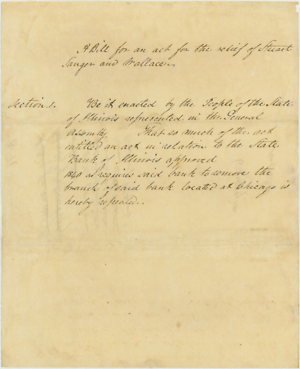 A Bill for an act for the relief of Stuart
Sanger and Wallace.
Section 1. Be it enacted by the People of the State
of Illinois represented in the General
Assembly That so much of the act
entitled an act in relation to the State
Bank of Illinois approved
1840 as requires said bank to remove the
branch of said bank located at Chicago is
hereby repealed.